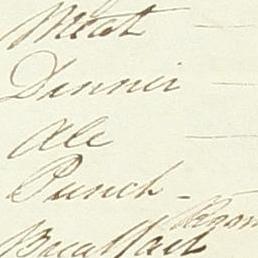 Meat
Dinner
Ale
Punch -
Breakfast